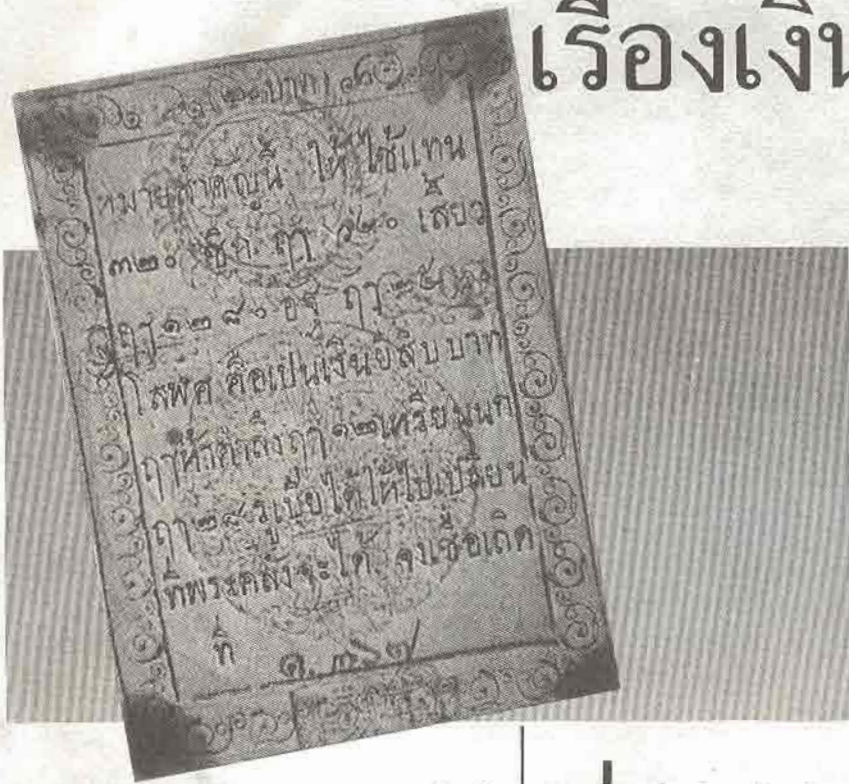 เรื่องเงิน
๒๐ บาท
หมายสำคัญนี้ ให้ ใช้แทน
๓๒๐ ซีก ฤๅ ๖๔๐ เสี้ยว
ฤๅ ๑๒๘๐ อฐ ฤๅ
โสฬศ คือเป็นเงินยี่สิบบาท
ฤๅห้าตำลึงฤๅ ๑๒เหรียนนก
ฤๅ๒๘รูเปียได้ให้ไปเปลี่ยน
ที่พระคลังจะได้ จงเชื่อเถิด
ที่